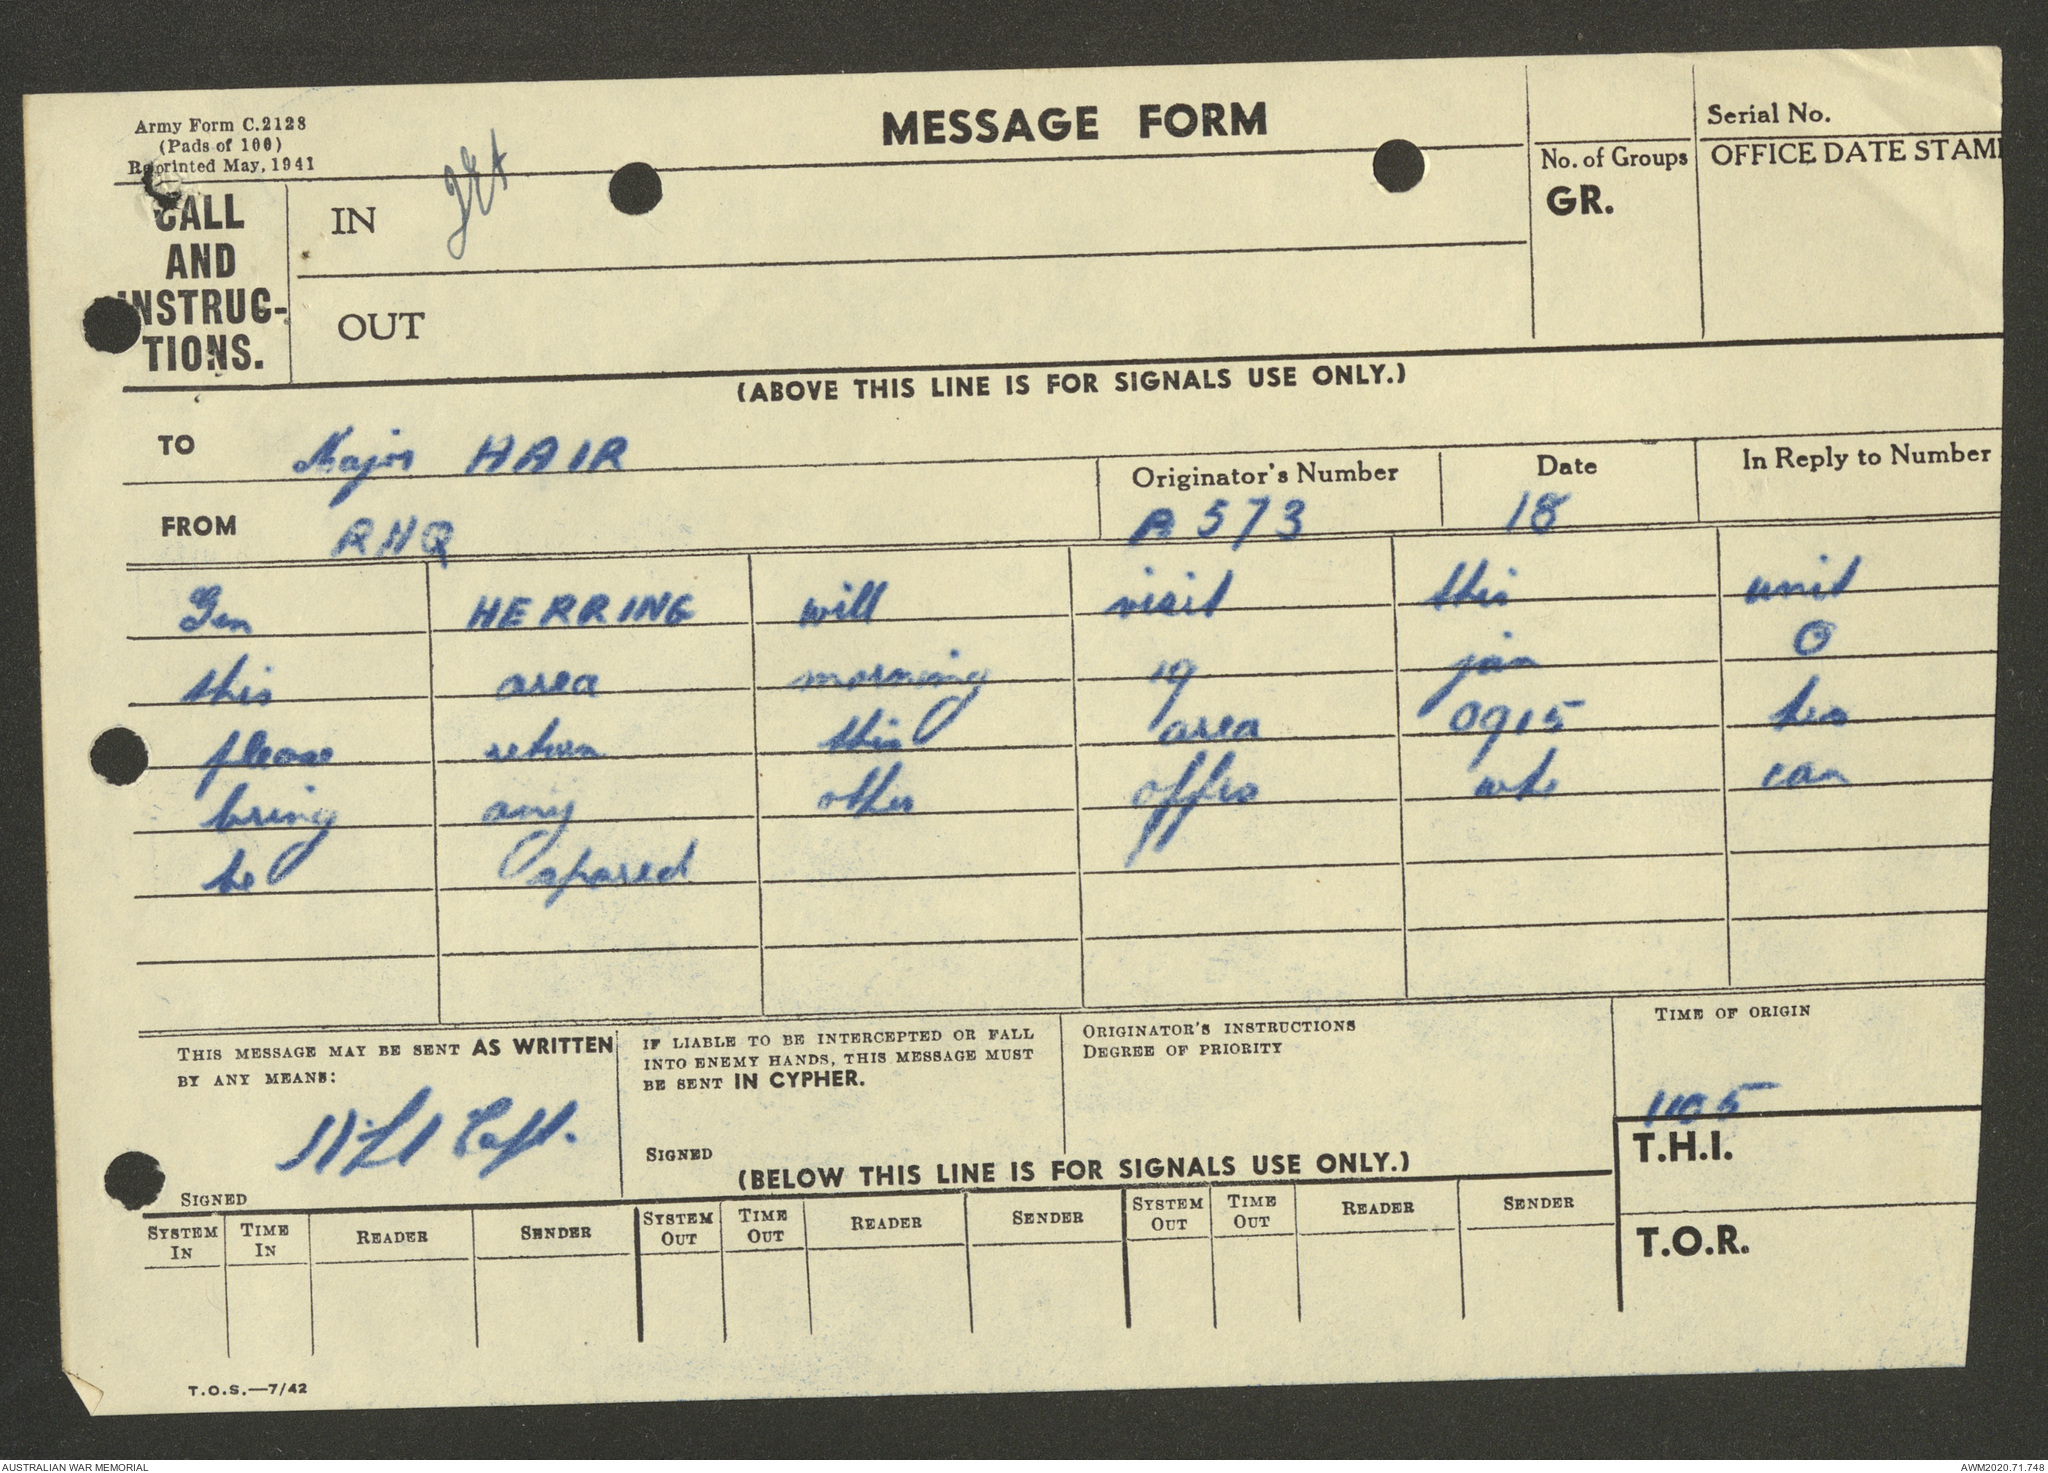 Army Form C.2128
(Pads of 100)
Reprinted May, 1941
MESSAGE FORM
Serial No.
No. of Groups
GR.
OFFICE DATE STAM
CALL
AND
INSTRUC-
TIONS.
IN
OUT
(ABOVE THIS LINE IS FOR SIGNALS USE ONLY.)
TO Major HAIR
FROM RHQ
Originator's Number
A 573
Date
18
In Reply to Number
Gen HERRING will visit this unit
this area morning 19 jan O
please return this area 0915 hrs
bring any other offrs who can
be spared
THIS MESSAGE MAY BE SENT AS WRITTEN
BY ANY MEANS:
Capt.
SIGNED
IF LIABLE TO BE INTERCEPTED OR FALL
INTO ENEMY HANDS, THIS MESSAGE MUST
BE SENT IN CYPHER.
SIGNED
ORIGINATOR'S INSTRUCTIONS
DEGREE OF PRIORITY
TIME OF ORIGIN
1105
T.H.I.
T.O.R.
(BELOW THIS LINE IS FOR SIGNALS USE ONLY.)
SYSTEM IN TIME IN READER SENDER SYSTEM OUT TIME OUT READER SENDER SYSTEM OUT TIME OUT READER SENDER
T.O.S.—7/42
AUSTRALIAN WAR MEMORIAL
AWM2020.71.748